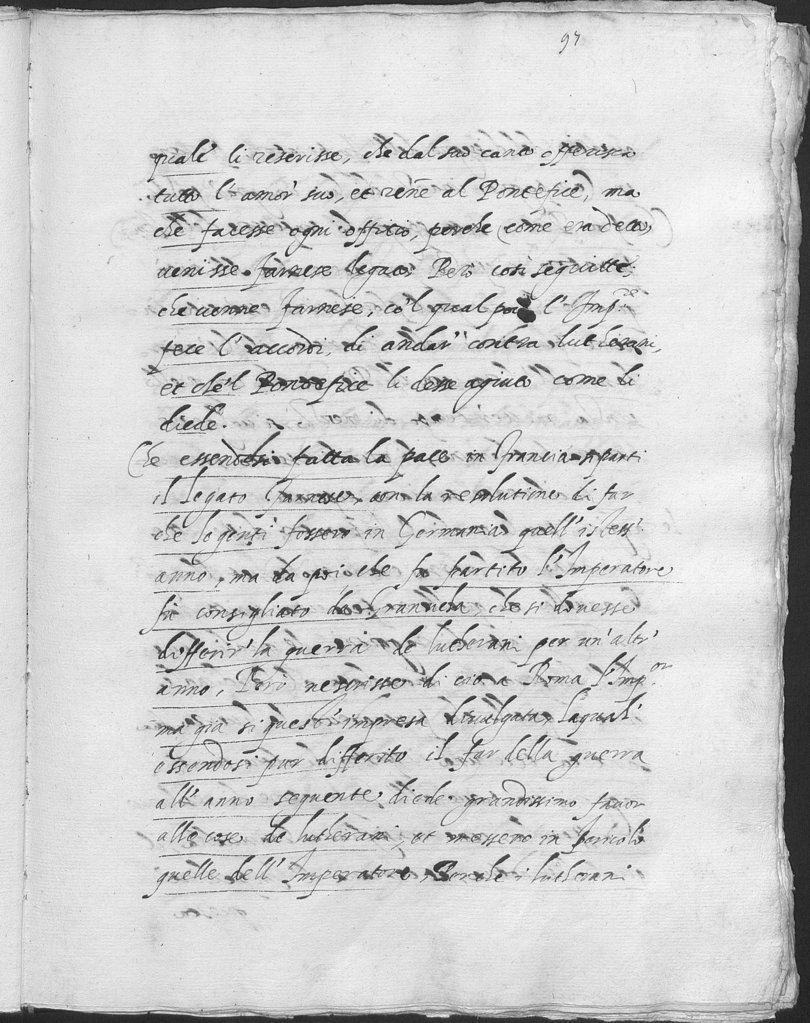 97
quale li rescrisse, che dal suo canto offeriva
tutto l'amor suo, et rene al Pontefice, ma
che facesse ogni offitio, perche come era detto,
venisse Farnese legato. Però così seguitte,
che venne Farnese, co'l qual poi l'Imp.re
fece l'accordi, di andar' contra Lutherani,
et che'l Pontefice li desse agiuto come li
diede.
Che essendosi fatta la pace in Francia si parti
il legato Farnese, con la resolutione di far
che le genti fossero in Germania quell'istess'
anno, ma da poi, che fu partito l'Imperatore
fù consigliato da Granuela, che si dovesse
differir' la guerra de lutherani per un'altr'
anno, Però ne scrisse di ciò a Roma l'Imp.or
ma già si quest'impresa divulgata, laqual'
essendosi pur differito il far della guerra
all'anno sequente, diede grandissimo favor
alle cose de lutherani, et messero in pericolo
quelle dell'Imperatore, Perche i lutherani